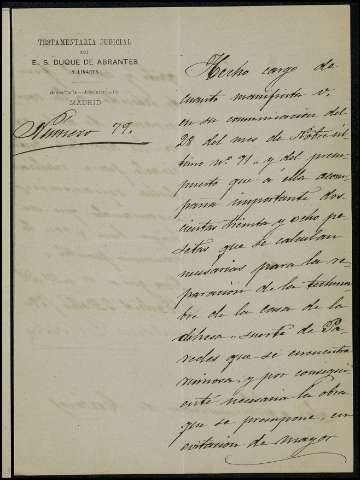 TESTAMENTARIA JUDICIAL
DEL
E. S. DUQUE DE ABRANTES
Y LINARES
MADRID
Número 79.
Hecho cargo de
cuanto manifiesta V.
en su comunicacion del
28 del mes de Nobre úl
timo nº 71, y del presu
puesto que á ella acom
paña importante dos
cientas treinta y ocho pe
setas que se calculan
necesarias para la re
paracion de la techum
bre de la casa de la
dehesa suerte de Pa
redes que se encuentra
ruinosa y por consigui
ente necesaria la obra
que se presupone, en
evitacion de mayor